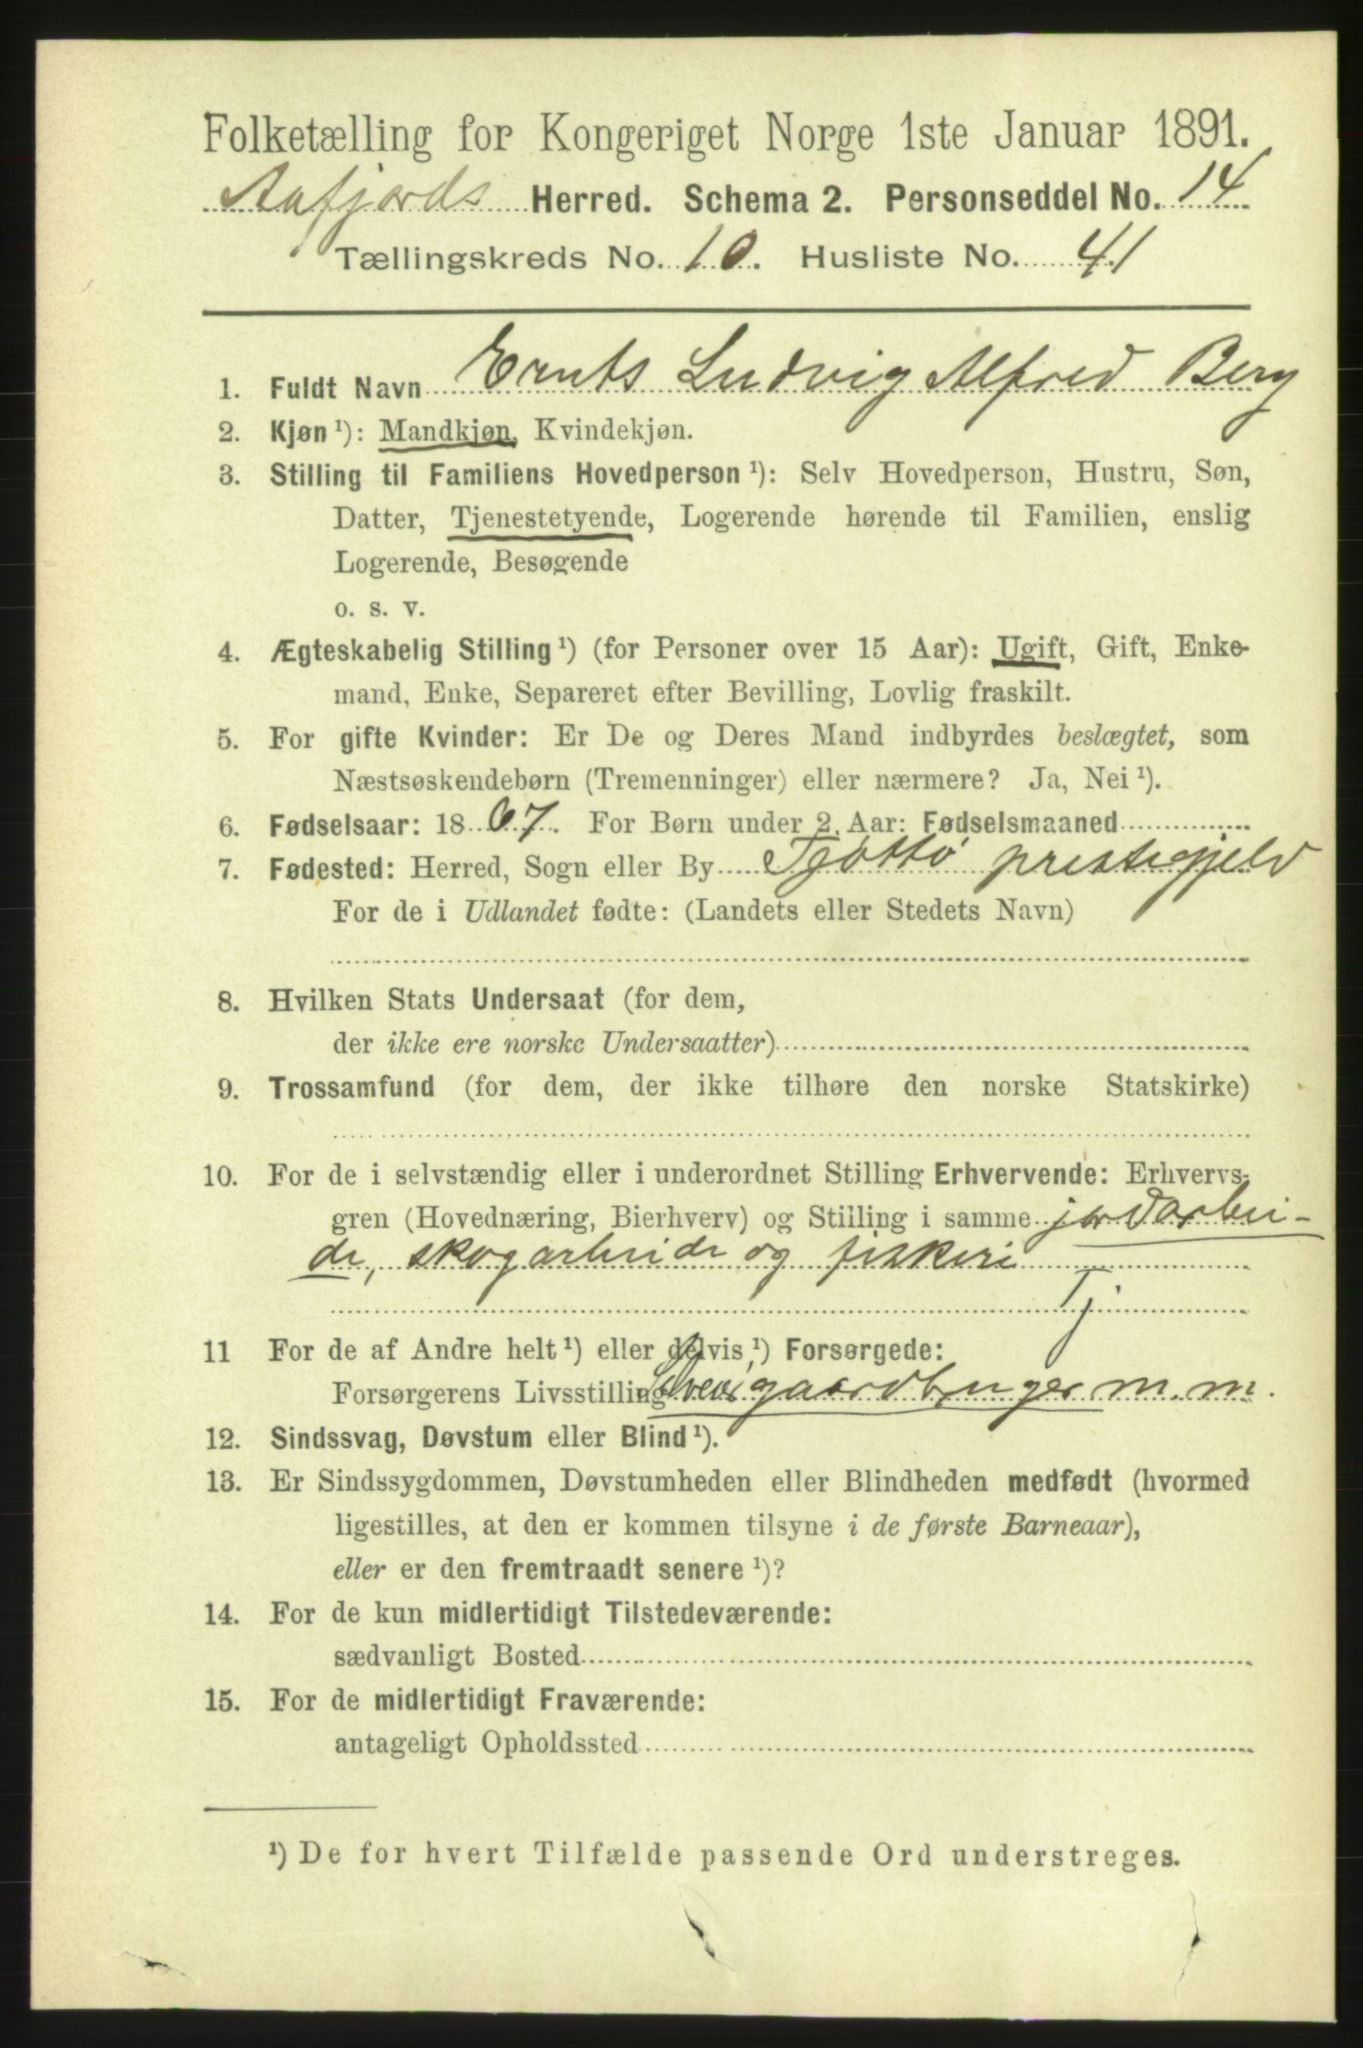 Folketælling for Kongeriget Norge 1ste Januar 1891.
Aafjords Herred. Schema 2. Personseddel No. 14
Tællingskreds No. 10. Husliste No. 41
1. Fuldt Navn Ernts Ludvig Alfred Berg
2. Kjøn ¹): Mandkjøn, Kvindekjøn.
3. Stilling til Familiens Hovedperson ¹): Selv Hovedperson, Hustru, Søn,
Datter, Tjenestetyende, Logerende hørende til Familien, enslig
Logerende, Besøgende
o. s. v.
4. Ægteskabelig Stilling ¹) (for Personer over 15 Aar): Ugift, Gift, Enke-
mand, Enke, Separeret efter Bevilling, Lovlig fraskilt.
5. For gifte Kvinder: Er De og Deres Mand indbyrdes beslægtet, som
Næstsøskendebørn (Tremenninger) eller nærmere? Ja, Nei ¹).
6. Fødselsaar: 1867. For Børn under 2 Aar: Fødselsmaaned
7. Fødested: Herred, Sogn eller By Tjøttø prestegjeld
For de i Udlandet fødte: (Landets eller Stedets Navn)
8. Hvilken Stats Undersaat (for dem,
der ikke ere norske Undersaatter)
9. Trossamfund (for dem, der ikke tilhøre den norske Statskirke)
10. For de i selvstændig eller i underordnet Stilling Erhvervende: Erhvervs-
gren (Hovednæring, Bierhverv) og Stilling i samme jordarbei-
de, skogarbeide og fiskeri
Tj
11 For de af Andre helt ¹) eller delvis ¹) Forsørgede:
Forsørgerens Livsstilling gaardbruger m. m.
12. Sindssvag, Døvstum eller Blind ¹).
13. Er Sindssygdommen, Døvstumheden eller Blindheden medfødt (hvormed
ligestilles, at den er kommen tilsyne i de første Barneaar),
eller er den fremtraadt senere ¹)?
14. For de kun midlertidigt Tilstedeværende:
sædvanligt Bosted
15. For de midlertidigt Fraværende:
antageligt Opholdssted
¹) De for hvert Tilfælde passende Ord understreges.